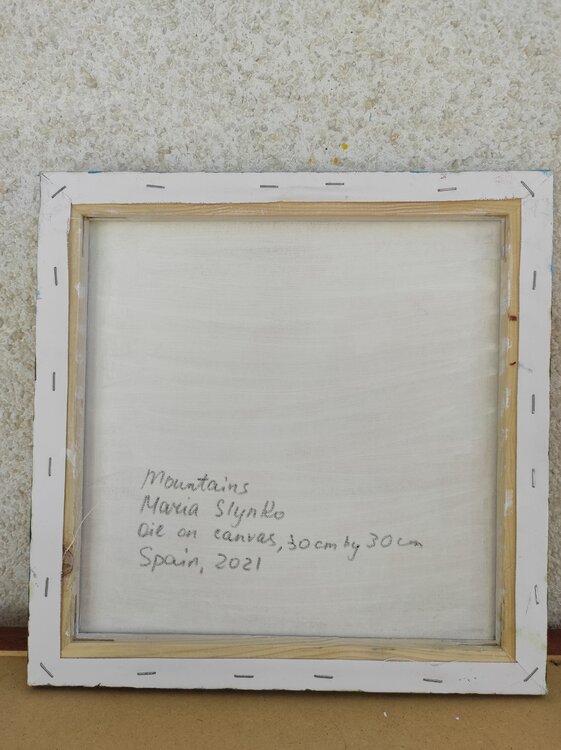 Mountains
Maria Slynko
Oie on canvas, 30cm by 30cm
Spain, 2021